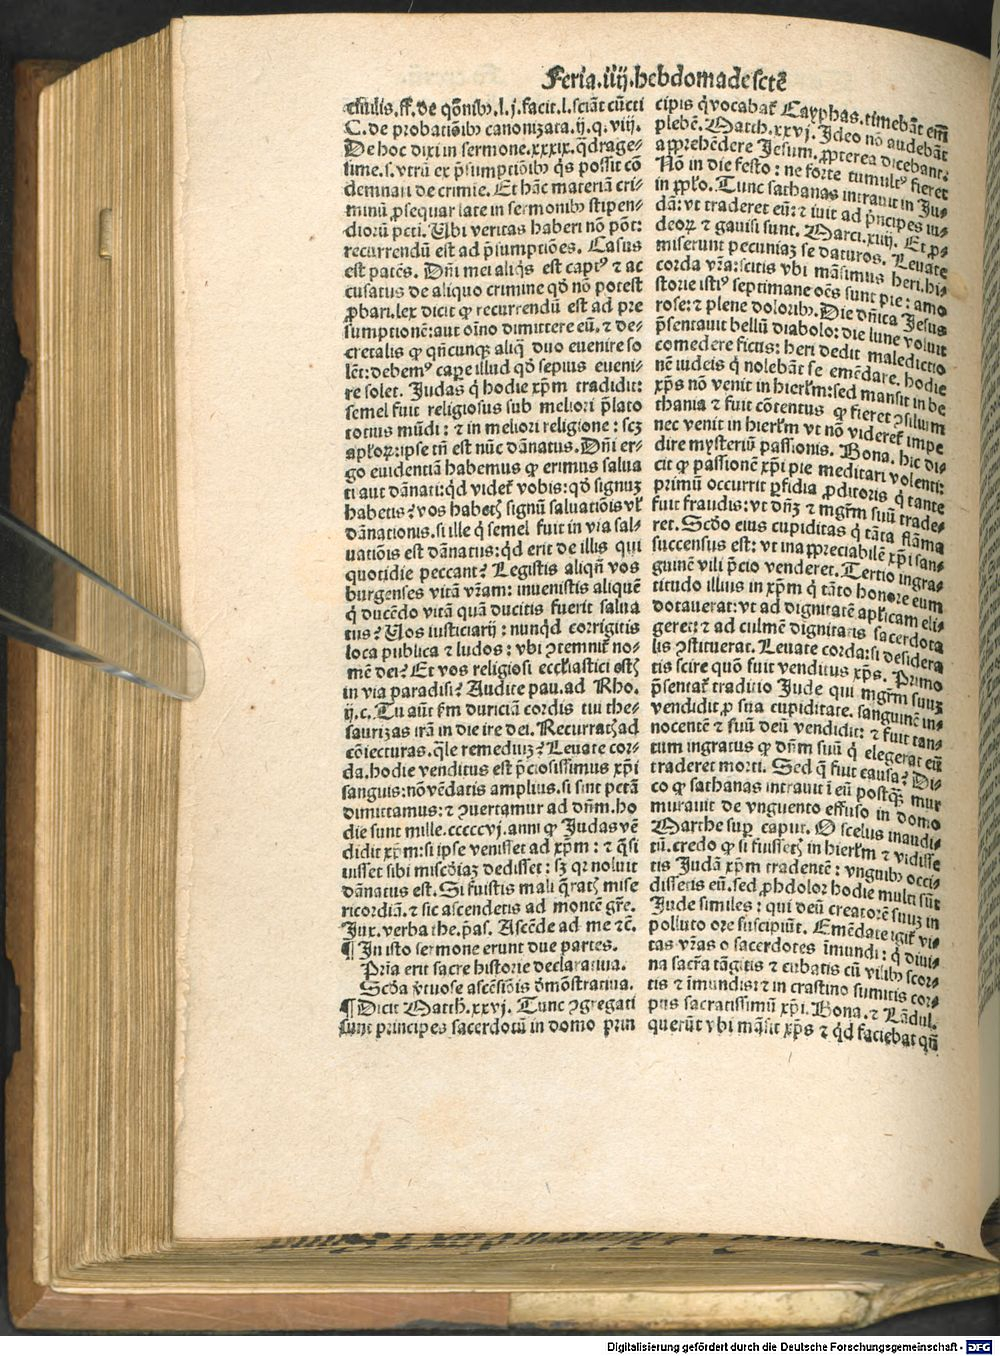 Feria.iiij.hebdomade sctē
ciuilis.ff.de q̄oñibꝰ.l.j.facit.l.sciāt cūcti
C. de probatiōibꝰ canonizata.ij.q.viij.
De hoc dixi in sermone.xxxix.q̄drage-
sime.s.vtrū ex p̄sumptiōibꝰ q̇s possit cō
demnari de crimie. Et hāc materiā cri-
minū ꝓsequar late in sermonibꝰ stipen-
diorū pcti. Ubi veritas haberi nō pōt:
recurrendū est ad p̄sumptiōes. Casus
est patēs. Dn̄i mei aliq̇s est captꝰ ⁊ ac
cusatus de aliquo crimine qđ nō potest
ꝓbari.lex dicit ꝙ recurrendū est ad pre
sumptionē:aut oīno dimittere eū. ⁊ de-
cretalis ꝙ qn̄cunqꝫ aliq̄ duo euenire so
lēt:debemꝰ caꝑe illud qđ sepius eueni-
re solet. Judas q̇ hodie xp̄m tradidit:
semel fuit religiosus sub meliori p̄lato
totius mūdi: ⁊ in meliori religione: scꝫ
apl̓oꝝ:ipse tn̄ est nūc dānatus. Dn̄i er-
go euidentiā habemus ꝙ erimus salua
ti aut dānati:qđ videt̄ vobis:qđ signuꝫ
habetis? vos habetꝭ signū saluatiōis vl̓
dānationis.si ille q̇ semel fuit in via sal-
uatiōis est dānatus:qđ erit de illis qui
quotidie peccant? Legistis aliqn̄ vos
burgenses vitā vr̄am: inuenistis aliquē
q̇ ducēdo vitā quā ducitis fuerit salua
tus? Uos iusticiarij: nunqđ corrigitis
loca publica ⁊ ludos: vbi ꝯtemnit̄ no-
mē dei? Et vos religiosi eccl̓iastici estꝭ
in via paradisi? Audite pau.ad Rho.
ij.c. Tu aūt ẜm duriciā cordis tui the-
saurizas irā in die ire dei. Recurratꝭ ad
cōiecturas. q̄le remediuꝫ? Leuate cor-
da. hodie venditus est p̄ciosissimus xp̄i
sanguis: nō vēdatis amplius. si sint pctā
dimittamus: ⁊ ꝯuertamur ad dn̄m. ho
die sunt mille.cccccvj.anni ꝙ Judas vē
didit xp̄m: si ipse venisset ad xp̄m: ⁊ q̄si
uisset sibi misc̄diaꝫ dedisset: sꝫ qꝛ noluit
dānatus est. Si fuistis mali q̄ratꝭ mise
ricordiā. ⁊ sic ascendetis ad montē gr̄e.
Jux. verba the.p̄as. Ascēde ad me ⁊c̄.
¶ In isto sermone erunt due partes.
Pr̄ia erit sacre historie declaratiua.
Scđa v̓tuose ascēsiōis dēmōstratiua.
¶ Dicit Matth.xxvj. Tunc ꝯgregati
sunt principes sacerdotū in domo prin
cipis q̇ vocabat̄ Cayphas. timebāt em̄
plebē. Matth.xxvj. Ideo nō audebāt
apprehēdere Jesum. ꝓpterea dicebant:
Nō in die festo: ne forte tumultꝰ fieret
in ppl̓o. Tunc sathanas intrauit in Ju-
dā: vt traderet eū: ⁊ iuit ad p̄ncipes iu-
deoꝝ ⁊ gauisi sunt. Marci.xiiij. Et ꝓ-
miserunt pecuniaꝫ se daturos. Leuate
corda vr̄a: scitis vbi māsimus heri. hi-
storie istiꝰ septimane oēs sunt pie: amo
rose: ⁊ plene doloribꝰ. Die dn̄ica Jesus
p̄sentauit bellū diabolo: die lune voluit
comedere ficus: heri dedit maledictio
nē iudeis q̇ nolebāt se emēdare. hodie
xp̄s nō venit in hierl̓m: sed mansit in be
thania ⁊ fuit cōtentus ꝙ fieret ꝯsilium
nec venit in hierl̓m vt nō videret̄ impe
dire mysteriū passionis. Bona. hic di-
cit ꝙ passionē xp̄i pie meditari volenti:
primū occurrit ꝑfidia ꝓditoris q̇ tante
fuit fraudis: vt dn̄ꝫ ⁊ mgr̄m suū trade-
ret. Scđo eius cupiditas q̇ tāta flāma
succensus est: vt inappreciabilē xp̄i san-
guinē vili p̄cio venderet. Tertio ingra-
titudo illius in xp̄m q̇ tāto honore eum
dotauerat: vt ad dignitatē apl̓icam eli-
geret: ⁊ ad culmē dignitatis sacerdota
lis ꝯstituerat. Leuate corda: si desidera
tis scire quō fuit venditus xp̄s. Primo
p̄sentat̄ traditio Jude qui mgr̄m suuꝫ
vendidit. ꝓ sua cupiditate. sanguinē in-
nocentē ⁊ suū deū vendidit: ⁊ fuit tan-
tum ingratus ꝙ dn̄m suū q̇ elegerat eū
traderet morti. Sed q̄ fuit causa? Di-
co ꝙ sathanas intrauit ī eū postq̄ꝫ mur
murauit de vnguento effuso in domo
Marthe suꝑ caput. O scelus inaudi-
tū. credo ꝙ si fuissetꝭ in hierl̓m ⁊ vidisse
tis Judā xp̄m tradentē: vnguibꝰ occi-
dissetis eū. sed ꝓhdolor hodie multi sūt
Jude similes: qui deū creatorē suuꝫ in
polluto ore suscipiūt. Emēdate igit̄ vi-
tas vr̄as o sacerdotes īmundi: q̇ diui-
na sacr̄a tāgitis ⁊ cubatis cū vilibꝰ scor-
tis ⁊ īmundis: ⁊ in crastino sumitis cor-
pus sacratissimū xp̄i. Bona. ⁊ Lādul.
querūt vbi māsit xp̄s ⁊ qđ faciebat qn̄
Digitalisierung gefördert durch die Deutsche Forschungsgemeinschaft - DFG